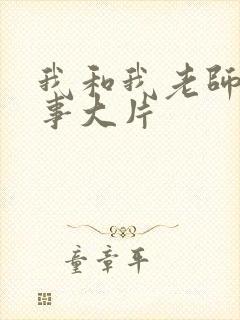 我和我老師
事大片
童章平